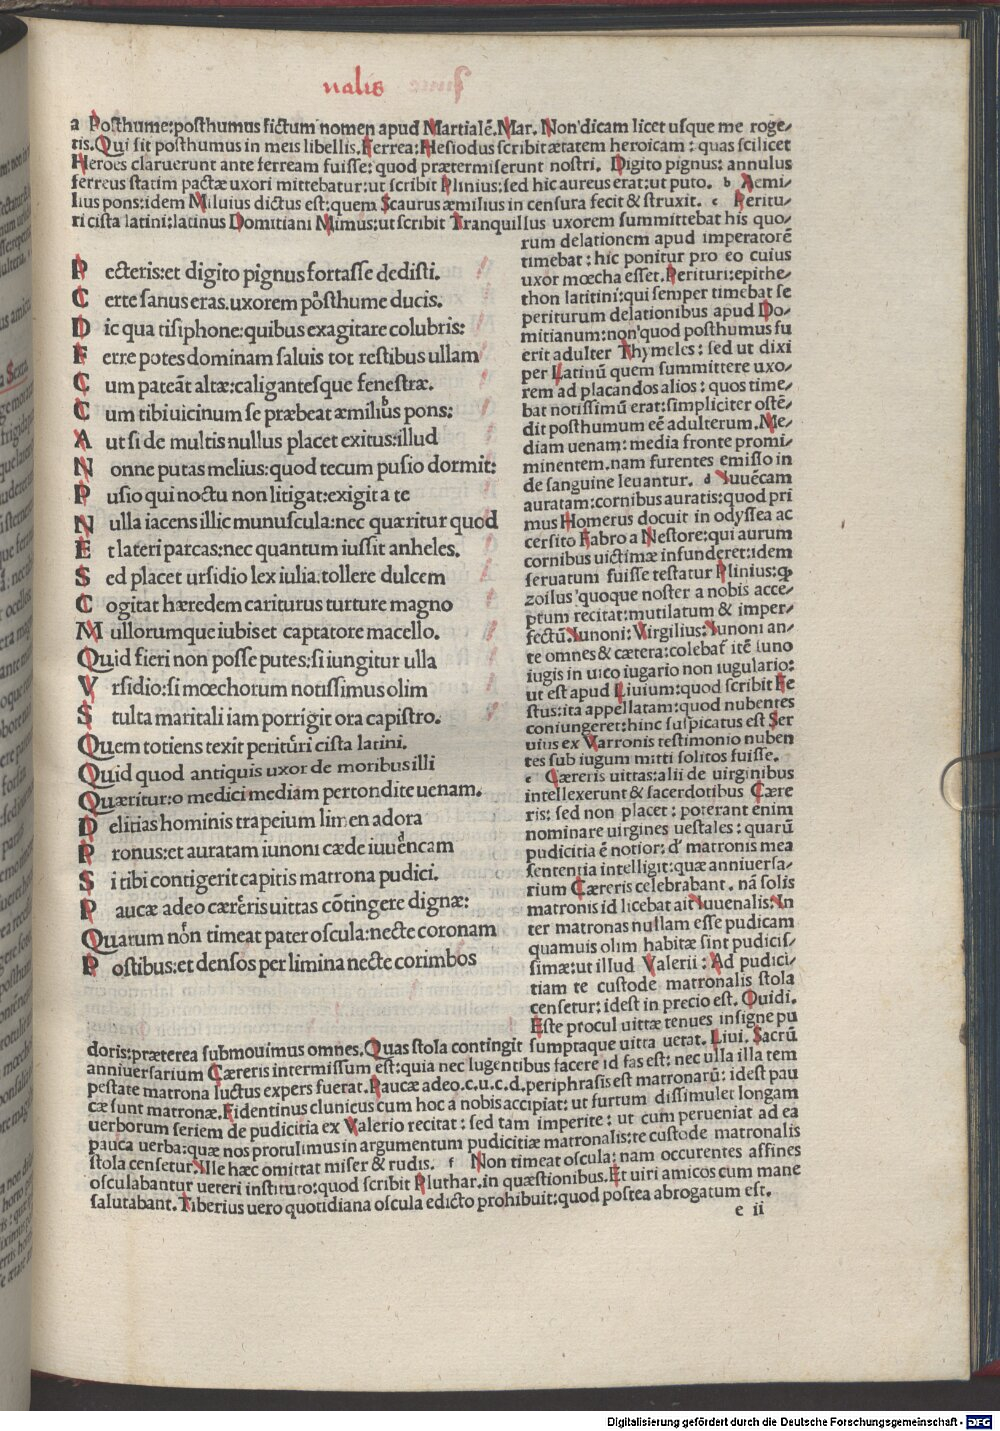 nalis
a Posthume:posthumus fictum nomen apud Martialē.Mar. Non dicam licet usque me roge/
tis.Qui sit posthumus in meis libellis. Ferrea:Hesiodus scribit ætatem heroicam : quas scilicet
Heroes claruerunt ante ferream fuisse: quod prætermiserunt nostri. Digito pignus: annulus
ferreus statim pactæ uxori mittebatur:ut scribit Plinius:sed hic aureus erat:ut puto. b Aemi/
lius pons:idem Miluius dictus est:quem Scaurus æmilius in censura fecit & struxit. c Peritu/
ri cista latini:latinus Domitiani Mimus:ut scribit Tranquillus uxorem summittebat his quo/
P ecteris:et digito pignus fortasse dedisti.
C erte sanus eras.uxorem posthume ducis.
D ic qua tisiphone:quibus exagitare colubris:
F erre potes dominam saluis tot restibus ullam
C um pateāt altæ:caligantesque fenestræ.
C um tibi uicinum se præbeat æmilius pons:
A ut si de multis nullus placet exitus:illud
N onne putas melius:quod tecum pusio dormit:
P usio qui noctu non litigat:exigit a te
N ulla iacens illic munuscula:nec quæritur quod
E t lateri parcas:nec quantum iussit anheles.
S ed placet ursidio lex iulia.tollere dulcem
C ogitat hæredem cariturus turture magno
M ullorumque iubis et captatore macello.
Quid fieri non posse putes:si iungitur ulla
V rsidio:si mœchorum notissimus olim
S tulta maritali iam porrigit ora capistro.
Quem totiens texit perituri cista latini.
Quid quod antiquis uxor de moribus illi
Quæritur:o medici mediam pertondite uenam.
D elitias hominis trapeium limen adora
P ronus:et auratam iunoni cæde iuuencam
S i tibi contigerit capitis matrona pudici.
P aucæ adeo cæreris uittas cōtingere dignæ:
Quarum non timeat pater oscula:necte coronam
P ostibus:et densos per limina necte corimbos
rum delationem apud imperatorē
timebat : hic ponitur pro eo cuius
uxor mœcha esset.Perituri:epithe/
thon latitini:qui semper timebat se
periturum delationibus apud Do/
mitianum:non quod posthumus fu
erit adulter Thymeles: sed ut dixi
per Latinū quem summittere uxo/
rem ad placandos alios : quos time/
bat notissimū erat:simpliciter ostē/
dit posthumum eē adulterum.Me/
diam uenam: media fronte promi/
minentem.nam furentes emisso in
de sanguine leuantur. d Iuuēcam
auratam:cornibus auratis:quod pri
mus Homerus docuit in odyssea ac
cersito Fabro a Nestore:qui aurum
cornibus uictimæ infunderet:idem
seruatum fuisse testatur Plinius:ꝙ
zoilus quoque noster a nobis acce/
ptum recitat:mutilatum & imper/
fectū.Iunoni: Virgilius:Iunoni an/
te omnes & cætera:colebat̄ itē iuno
iugis in uico iugario non iugulario:
ut est apud Liuium:quod scribit Fe
stus:ita appellatam:quod nubentes
coniungeret:hinc suspicatus est Ser
uius ex Varronis testimonio nuben
tes sub iugum mitti solitos fuisse.
e Cæreris uittas:alii de uirginibus
intellexerunt & sacerdotibus Cære
ris: sed non placet : poterant enim
nominare uirgines uestales : quarū
pudicitia ē notior: d' matronis mea
sententia intelligit:quæ anniuersa/
rium Cæreris celebrabant . nā solis
matronis id licebat ait Iuuenalis:In
ter matronas nullam esse pudicam
quamuis olim habitæ sint pudicis/
simæ:ut illud Valerii : Ad pudici/
tiam te custode matronalis stola
censetur: idest in precio est. Quidi.
Este procul uittæ tenues insigne pu
doris:præterea submouimus omnes.Quas stola contingit sumptaque uitta uetat. Liui. Sacrū
anniuersarium Cæreris intermissum est:quia nec lugentibus facere id fas est: nec ulla illa tem
pestate matrona luctus expers fuerat.Paucæ adeo.c.u.c.d.periphrasis est matronarū: idest pau
cæ sunt matronæ.Fidentinus clunicus cum hoc a nobis accipiat: ut furtum dissimulet longam
uerborum seriem de pudicitia ex Valerio recitat : sed tam imperite : ut cum perueniat ad ea
pauca uerba:quæ nos protulimus in argumentum pudicitiæ matronalis:te custode matronalis
stola censetur.Ille hæc omittat miser & rudis. f Non timeat oscula: nam occurentes affines
osculabantur ueteri instituto:quod scribit Pluthar.in quæstionibus.Et uiri amicos cum mane
salutabant.Tiberius uero quotidiana oscula edicto prohibuit:quod postea abrogatum est.
e ii
Digitalisierung gefördert durch die Deutsche Forschungsgemeinschaft - DFG